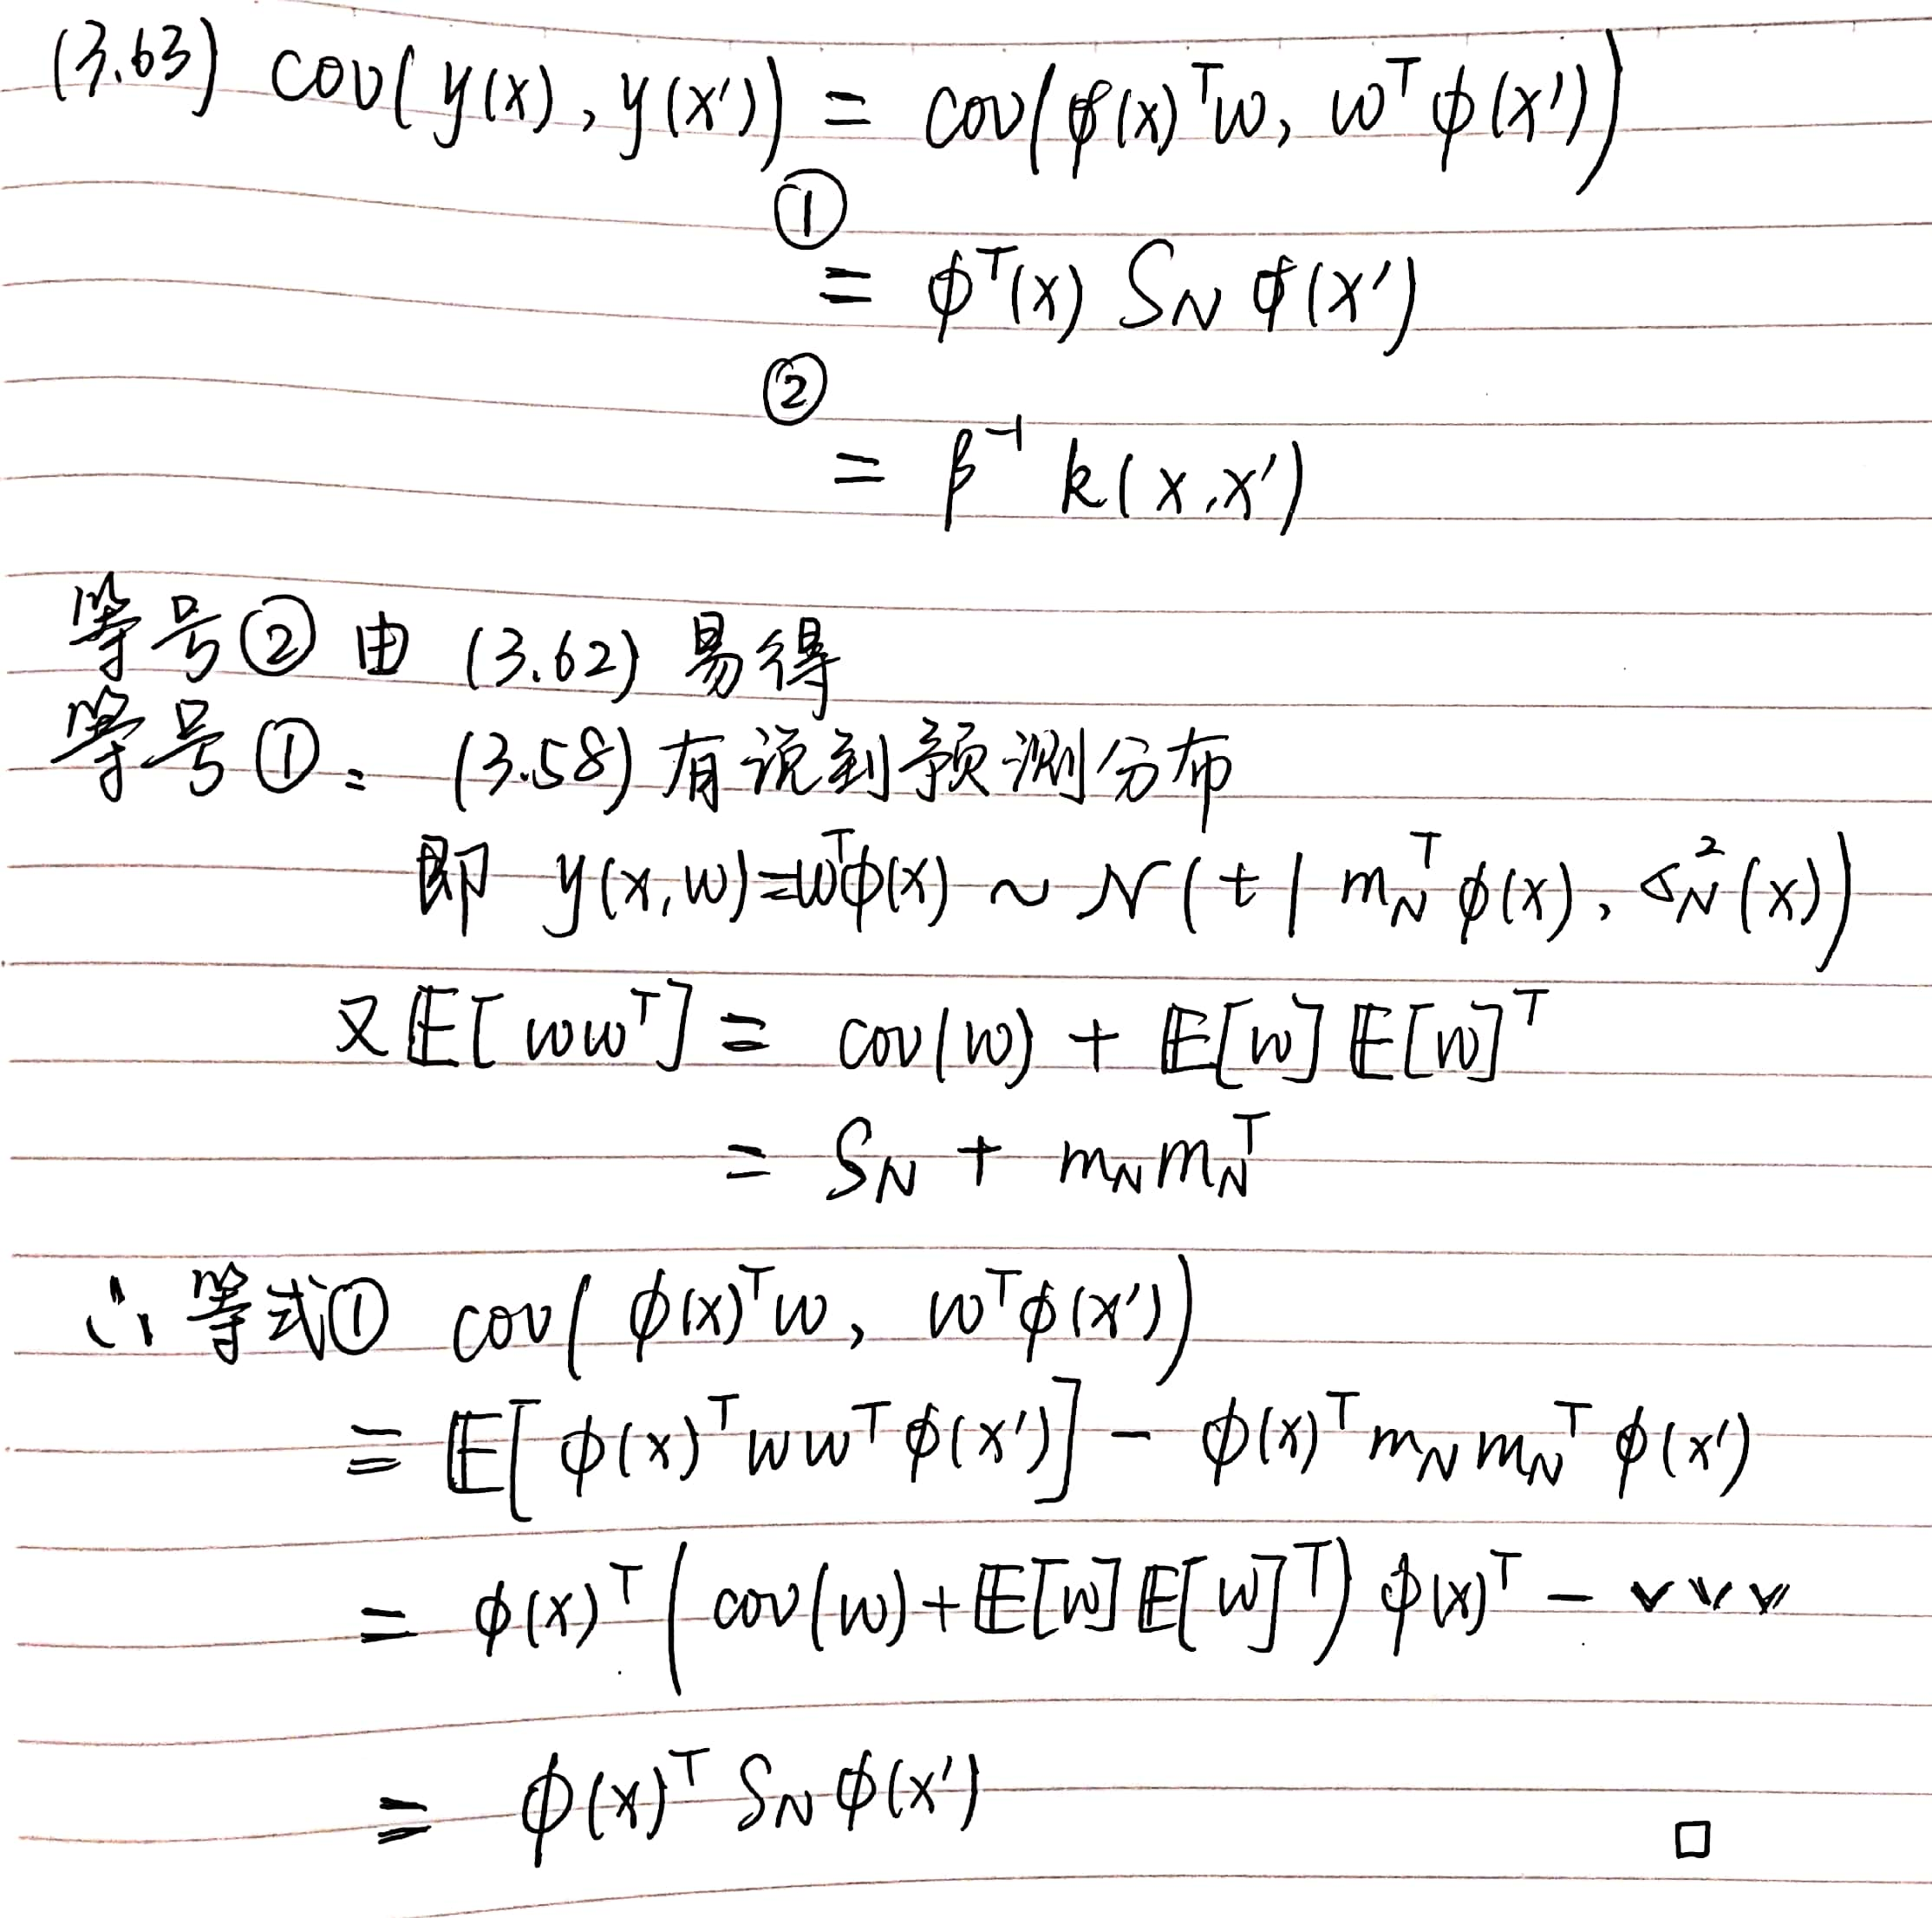 (3.63) cov(y(x), y(x')) = cov(φ(x)ᵀw, wᵀφ(x'))
①
= φᵀ(x) S_N φ(x')
②
= β⁻¹ k(x,x')
等号② 由 (3.62) 易得
等号①: (3.58) 有说到预测分布
即 y(x,w)=wᵀφ(x) ~ N(t | m_Nᵀ φ(x), σ_N²(x))
又 𝔼[wwᵀ] = cov(w) + 𝔼[w] 𝔼[w]ᵀ
= S_N + m_N m_Nᵀ
∴ 等式① cov(φ(x)ᵀw, wᵀφ(x'))
= 𝔼[φ(x)ᵀwwᵀφ(x')] - φ(x)ᵀ m_N m_Nᵀ φ(x')
= φ(x)ᵀ (cov(w) + 𝔼[w] 𝔼[w]ᵀ) φ(x)ᵀ -
= φ(x)ᵀ S_N φ(x') □